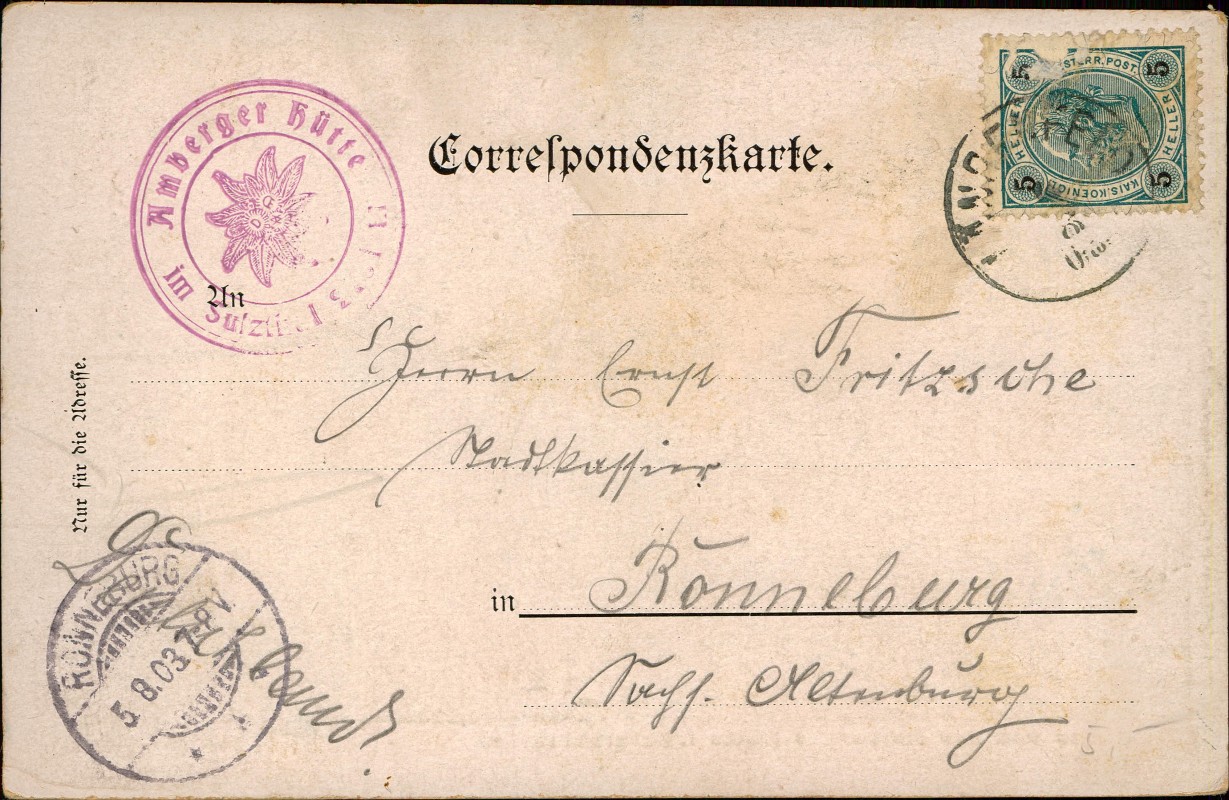 Correspondenzkarte.
Amberger Hütte
im Sulzthal
An
Herrn Ernst Fritzsche
Stadtkassier
in Ronneburg
Sachs. Altenburg
Nur für die Adresse.
5 5
ÖSTERR. POST.
HELLER HELLER
5 5
KAIS. KOENIGL.
RONNEBURG
5.8.03. 7-8V.